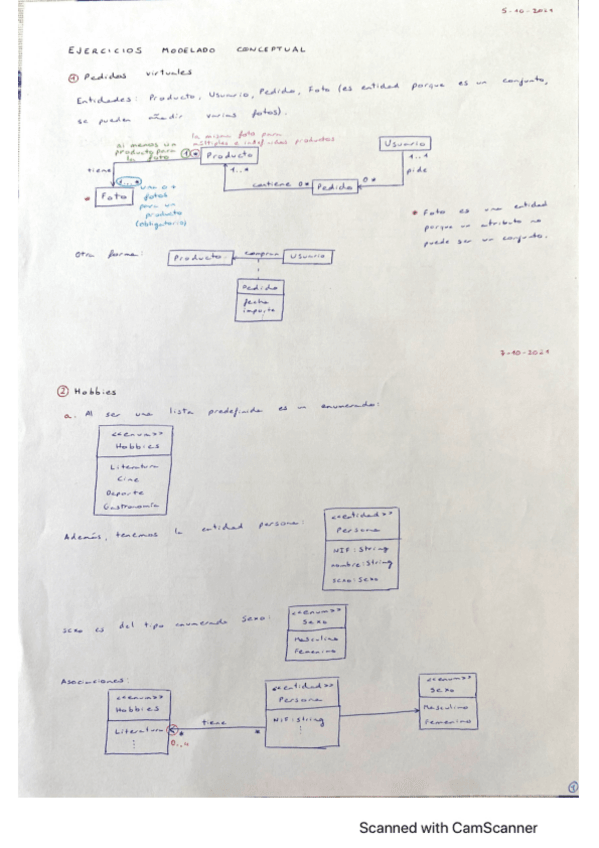 5-10-2021
EJERCICIOS MODELADO CONCEPTUAL
1 Pedidos virtuales
Entidades: Producto, Usuario, Pedido, Foto (es entidad porque es un conjunto,
se pueden añadir varias fotos).
la misma foto para
múltiples e indefinidos productos
al menos un
producto para
la foto
1 *
Producto
Usuario
tiene
1..*
1..*
1..1
pide
Foto
una o +
fotos
para un
producto
(obligatorio)
contiene 0*
Pedido
0*
* Foto es una entidad
porque un atributo no
puede ser un conjunto.
Otra forma:
Producto
compran
Usuario
Pedido
fecha
importe
7-10-2021
2 Hobbies
a. Al ser una lista predefinida es un enumerado:
<<enum>>
Hobbies
Literatura
Cine
Deporte
Gastronomía
Además, tenemos la entidad persona:
<<entidad>>
Persona
NIF: String
nombre: String
sexo: Sexo
sexo es del tipo enumerado Sexo:
<<enum>>
Sexo
Masculino
Femenino
Asociaciones:
<<enum>>
Hobbies
Literatura
⋮
*
0..n
tiene
*
<<entidad>>
Persona
NIF: String
⋮
<<enum>>
Sexo
Masculino
Femenino
1
Scanned with CamScanner